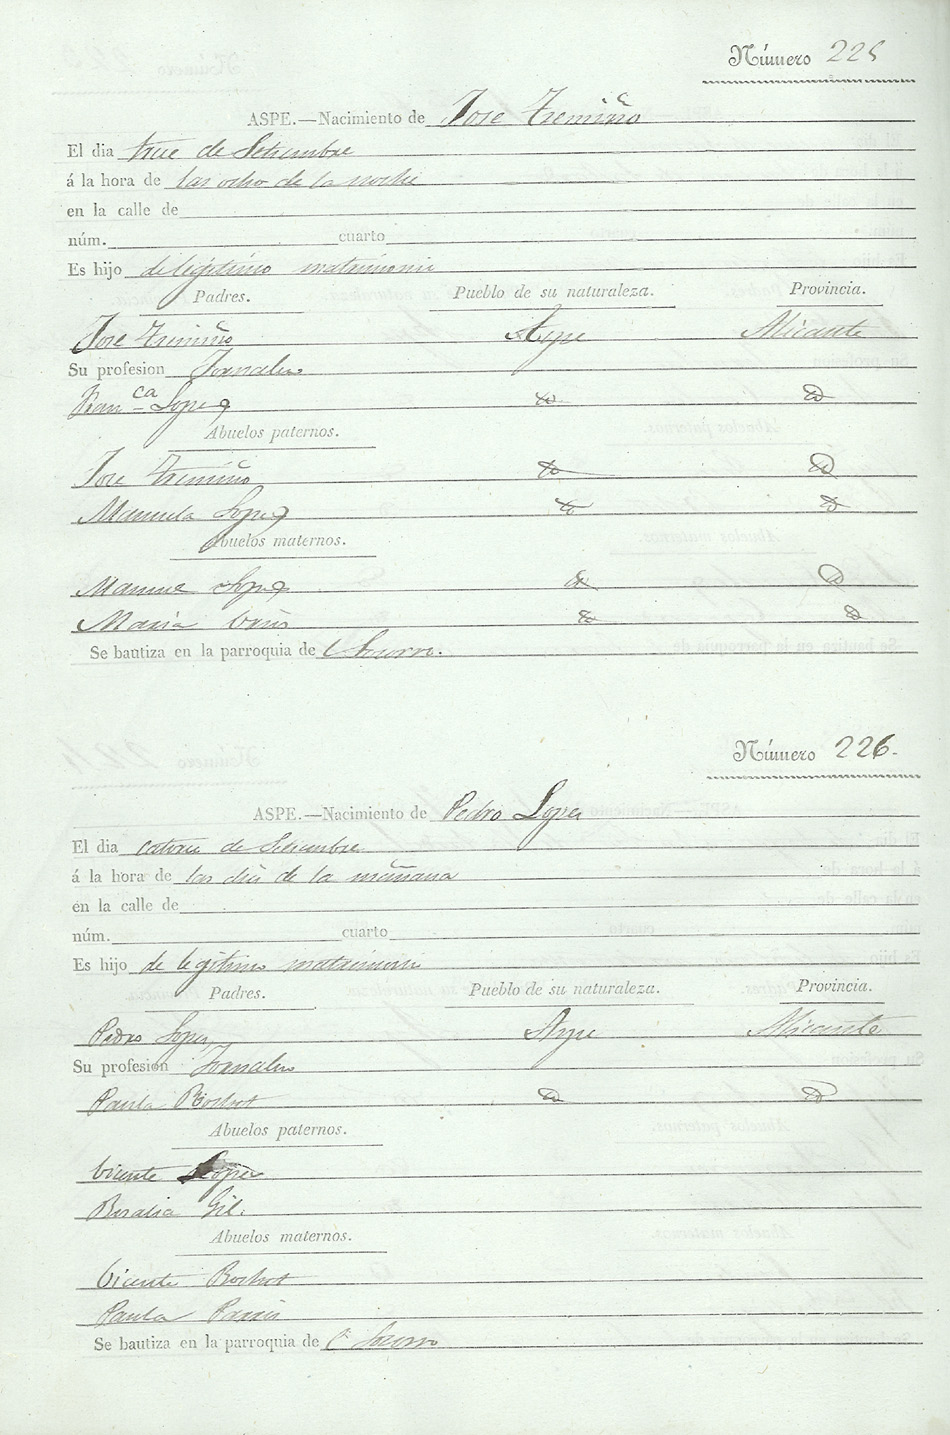 Número 225
ASPE.—Nacimiento de Jose Tremiño
El dia trece de Setiembre
á la hora de las ocho de la noche
en la calle de
núm. cuarto
Es hijo de legitimo matrimonio
Padres. Pueblo de su naturaleza. Provincia.
Jose Tremiño Aspe Alicante
Su profesion Jornalero
Fran.ca Lopez
Abuelos paternos.
Jose Tremiño
Manuela Lopez
Abuelos maternos.
Manuel Lopez
Maria
Se bautiza en la parroquia de Socorro.
Número 226.
ASPE.—Nacimiento de Pedro Lopez
El dia catorce de Setiembre
á la hora de las diez de la mañana
en la calle de
núm. cuarto
Es hijo de legitimo matrimonio
Padres. Pueblo de su naturaleza. Provincia.
Pedro Lopez Aspe Alicante
Su profesión Jornalero
Paula
Abuelos paternos.
Vicente Lopez
Rosalia Gil.
Abuelos maternos.
Vicente
Paula
Se bautiza en la parroquia de Socorro